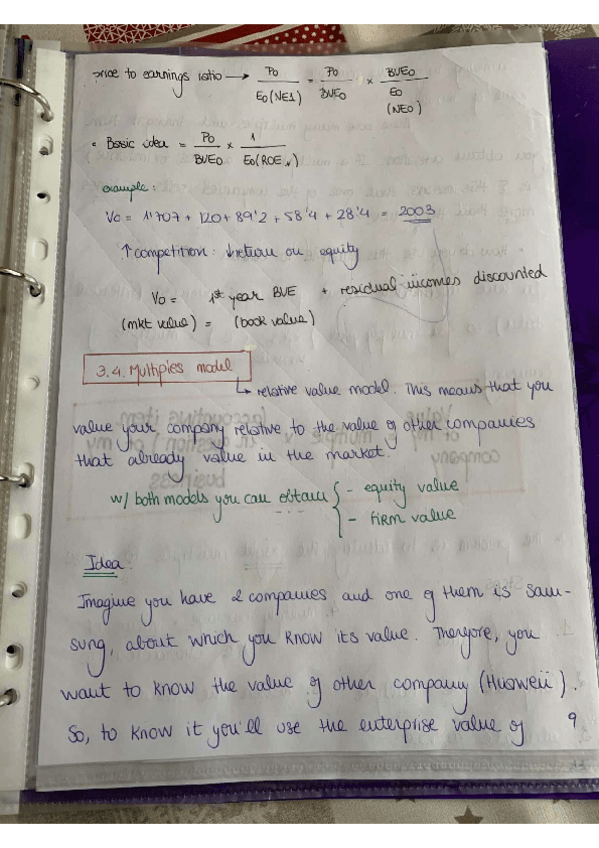 price to earnings ratio → P0 / E0(NE1) = P0 / BVE0 × BVE0 / E0 (NE0)
• Basic idea = P0 / BVE0 × 1 / E0(ROE1)
example:
V0 = 1'707 + 120 + 89'2 + 58'4 + 28'4 = 2003
↑ competition: ↓ return on equity
V0 = 1st year BVE + residual incomes discounted
(mkt value) = (book value)
3.4. Multiples model
↳ relative value model. This means that you
value your company relative to the value of other companies
that already value in the market.
w/ both models you can obtain { - equity value
- firm value
Idea:
Imagine you have 2 companies and one of them is Sam-
sung, about which you know its value. Therefore, you
want to know the value of other company (Huaweii).
So, to know it you'll use the enterprise value of
9